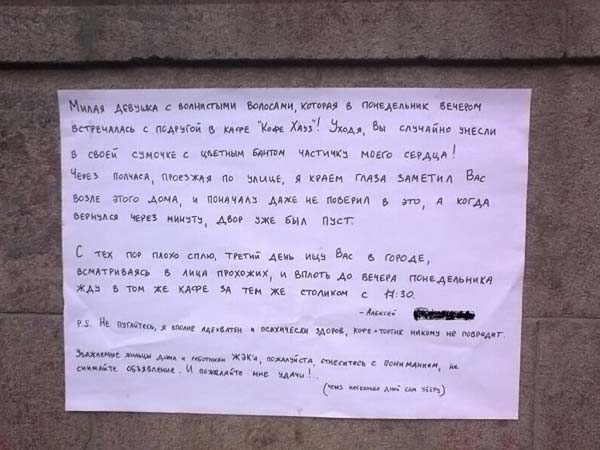 Милая девушка с волнистыми волосами, которая в понедельник вечером
встречалась с подругой в кафе "Кофе Хауз"! Уходя, Вы случайно унесли
в своей сумочке с цветным бантом частичку моего сердца!
Через полчаса, проезжая по улице, я краем глаза заметил Вас
возле этого дома, и поначалу даже не поверил в это, а когда
вернулся через минуту, двор уже был пуст.
С тех пор плохо сплю, третий день ищу Вас в городе,
всматриваясь в лица прохожих, и вплоть до вечера понедельника
жду в том же кафе за тем же столиком с 17:30.
- Алексей
P.S. Не пугайтесь, я вполне адекватен и психически здоров, кофе+тортик никому не повредит.
Уважаемые жильцы дома и работники ЖЭК'а, пожалуйста, отнеситесь с пониманием, не
снимайте объявление. И пожелайте мне удачи!..
(через несколько дней сам уберу)